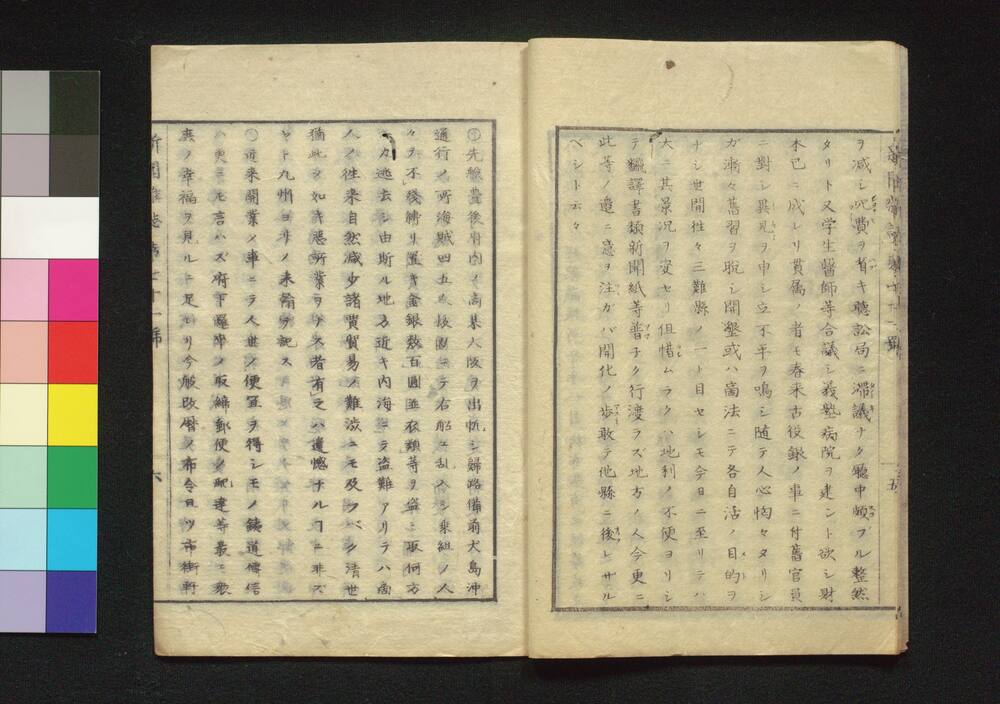 ヲ減シ冗費ヲ省キ聴訟局ニ滞議ナク聴中頗フル整然
タリト又学生醫師等合議シ義塾病院ヲ建ント欲シ財
本已ニ成レリ貫属ノ者モ春来古役銀ノ事ニ付舊官員
ニ對シ異見ヲ申シ立不平ヲ鳴シ随テ人心恟々タリシ
ガ漸々舊習ヲ脱シ開墾或ハ商法ニテ各自活ノ目的ヲ
ナシ世間往々三難縣ノ一ト目セシモ今日ニ至リテハ
大ニ其景况ヲ変セリ但惜ムラクハ地利ノ不便ヨリシ
テ飜譯書類新聞紙等普子ク行渡ラズ地方ノ人今更ニ
此等ノ邊ニ意ヲ注ガバ開化ノ歩敢テ他縣ニ後レサル
ベシト云々
五
○先般豊後府内ノ商某大阪ヲ出帆シ歸路備前犬島沖
通行ノ所海賊四五人抜刀ニテ右船ニ乱入シ乗組ノ人
々ヲ不残縛リ置キ金銀数百圓並衣類等ヲ盗ミ取何方
ヘカ逃去シ由斯ル地方近キ内海ニテ盗難アリテハ商
人ノ往来自然减少諸貨貿易ノ難渋ニモ及フベク清世
猶此ノ如キ悪所業ヲナス者有之ハ遺憾ナルヿニ非ズ
ヤト九州ヨリノ来翰ヲ記ス
○近来開業ノ事ニテ人世ノ便宜ヲ得シモノ鉄道傳信
ハ更ニモ言ハズ府下邏卒ノ取締郵便ノ配達等最ニ衆
庶ノ幸福ヲ見ルニ足レリ今般改暦ノ布令日ツ市街軒
新聞雑誌第七十一號
六